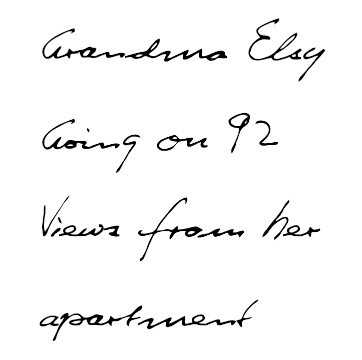 Grandma Elsy
Going on 92
Views from her
apartment